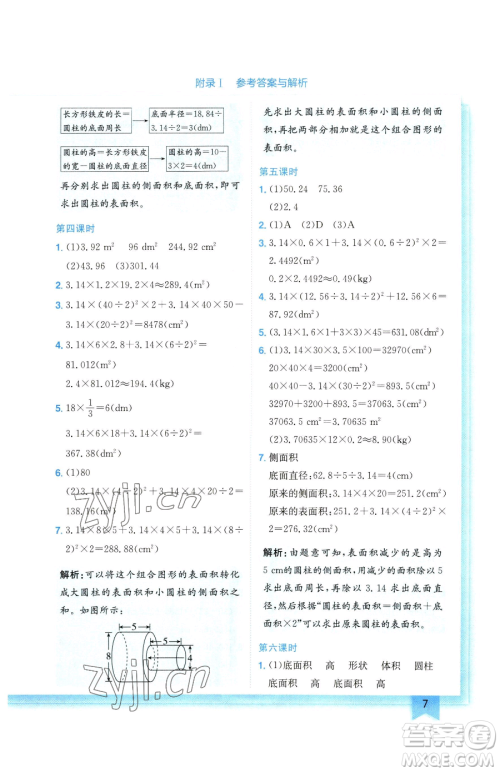 附录Ⅰ 参考答案与解析
长方形铁皮的长=圆柱的底面周长
底面半径=18.84÷3.14÷2=3(dm)
圆柱的高=长方形铁皮的宽-圆柱的底面直径
圆柱的高=10-3×2=4(dm)
再分别求出圆柱的侧面积和底面积,即可
求出圆柱的表面积。
第四课时
1. (1)3.92 m² 96 dm² 301.44 m²
(2)43.96 (3)301.44
2. 3.14×1.2×19.2×4≈289.4(m²)
3. 3.14×(40÷2)²×2+3.14×40×50-
3.14×(20÷2)²=8478(cm²)
4. 3.14×6×2.8+3.14×(6÷2)²=
81.012(m²)
2.4×81.012≈194.4(kg)
5. 18×1/3=6(dm)
3.14×6×18+3.14×(6÷2)²=
367.38(dm²)
6. (1)80
(2)3.14×(4÷2)²+3.14×4×10=
138.16(m²)
7. 3.14×8×5+3.14×4×5+3.14×(8÷
2)²×2=288.88(cm²)
解析:可以将这个组合图形的表面积转化
成大圆柱的表面积与小圆柱的侧面积之
和。如图所示:
5 5
8 4
先求出大圆柱的表面积和小圆柱的侧面
积,再把两部分加起来就是这个组合图形的
表面积。
第五课时
1. (1)50.24 75.36
(2)2.4
2. (1)A (2)D (3)A
3. 3.14×0.6×1+3.14×(0.6÷2)²×2=
2.4492(m²)
0.2×2.4492≈0.5(kg)
4. 3.14×(4÷2)²×2+3.14×4×5=
87.92(dm²)
5. (3.14×1.2×1+1.2×1)÷2=2.484(m²)
6. (1)3.14×30×35×10=32970(cm²)
20×40×4=3200(cm²)
40×40-3.14×(30÷2)²=893.5(cm²)
32970+3200+893.5=37063.5(cm²)
37063.5 cm²=3.70635 m²
(2)3.70635×10≈37(kg)
7. 侧面积
底面直径:62.8÷5÷3.14=4(cm)
原来的侧面积:3.14×4×20=251.2(cm²)
原来的表面积:251.2+3.14×(4÷2)²×
2=276.32(cm²)
解析:由题意可知,表面积减少的是高为
5 cm的圆柱的侧面积,用减少的面积除以5
求出底面周长,再除以3.14求出底面直
径,最后根据“圆柱的表面积=侧面积+底面
积×2”可以求出原来圆柱的表面积。
第六课时
1. (1)底面积 高 形状 体积 圆柱
底面积 高 底面积 高
7
zyjl.cn
zyjl.cn
答案圈
MXQE.COM